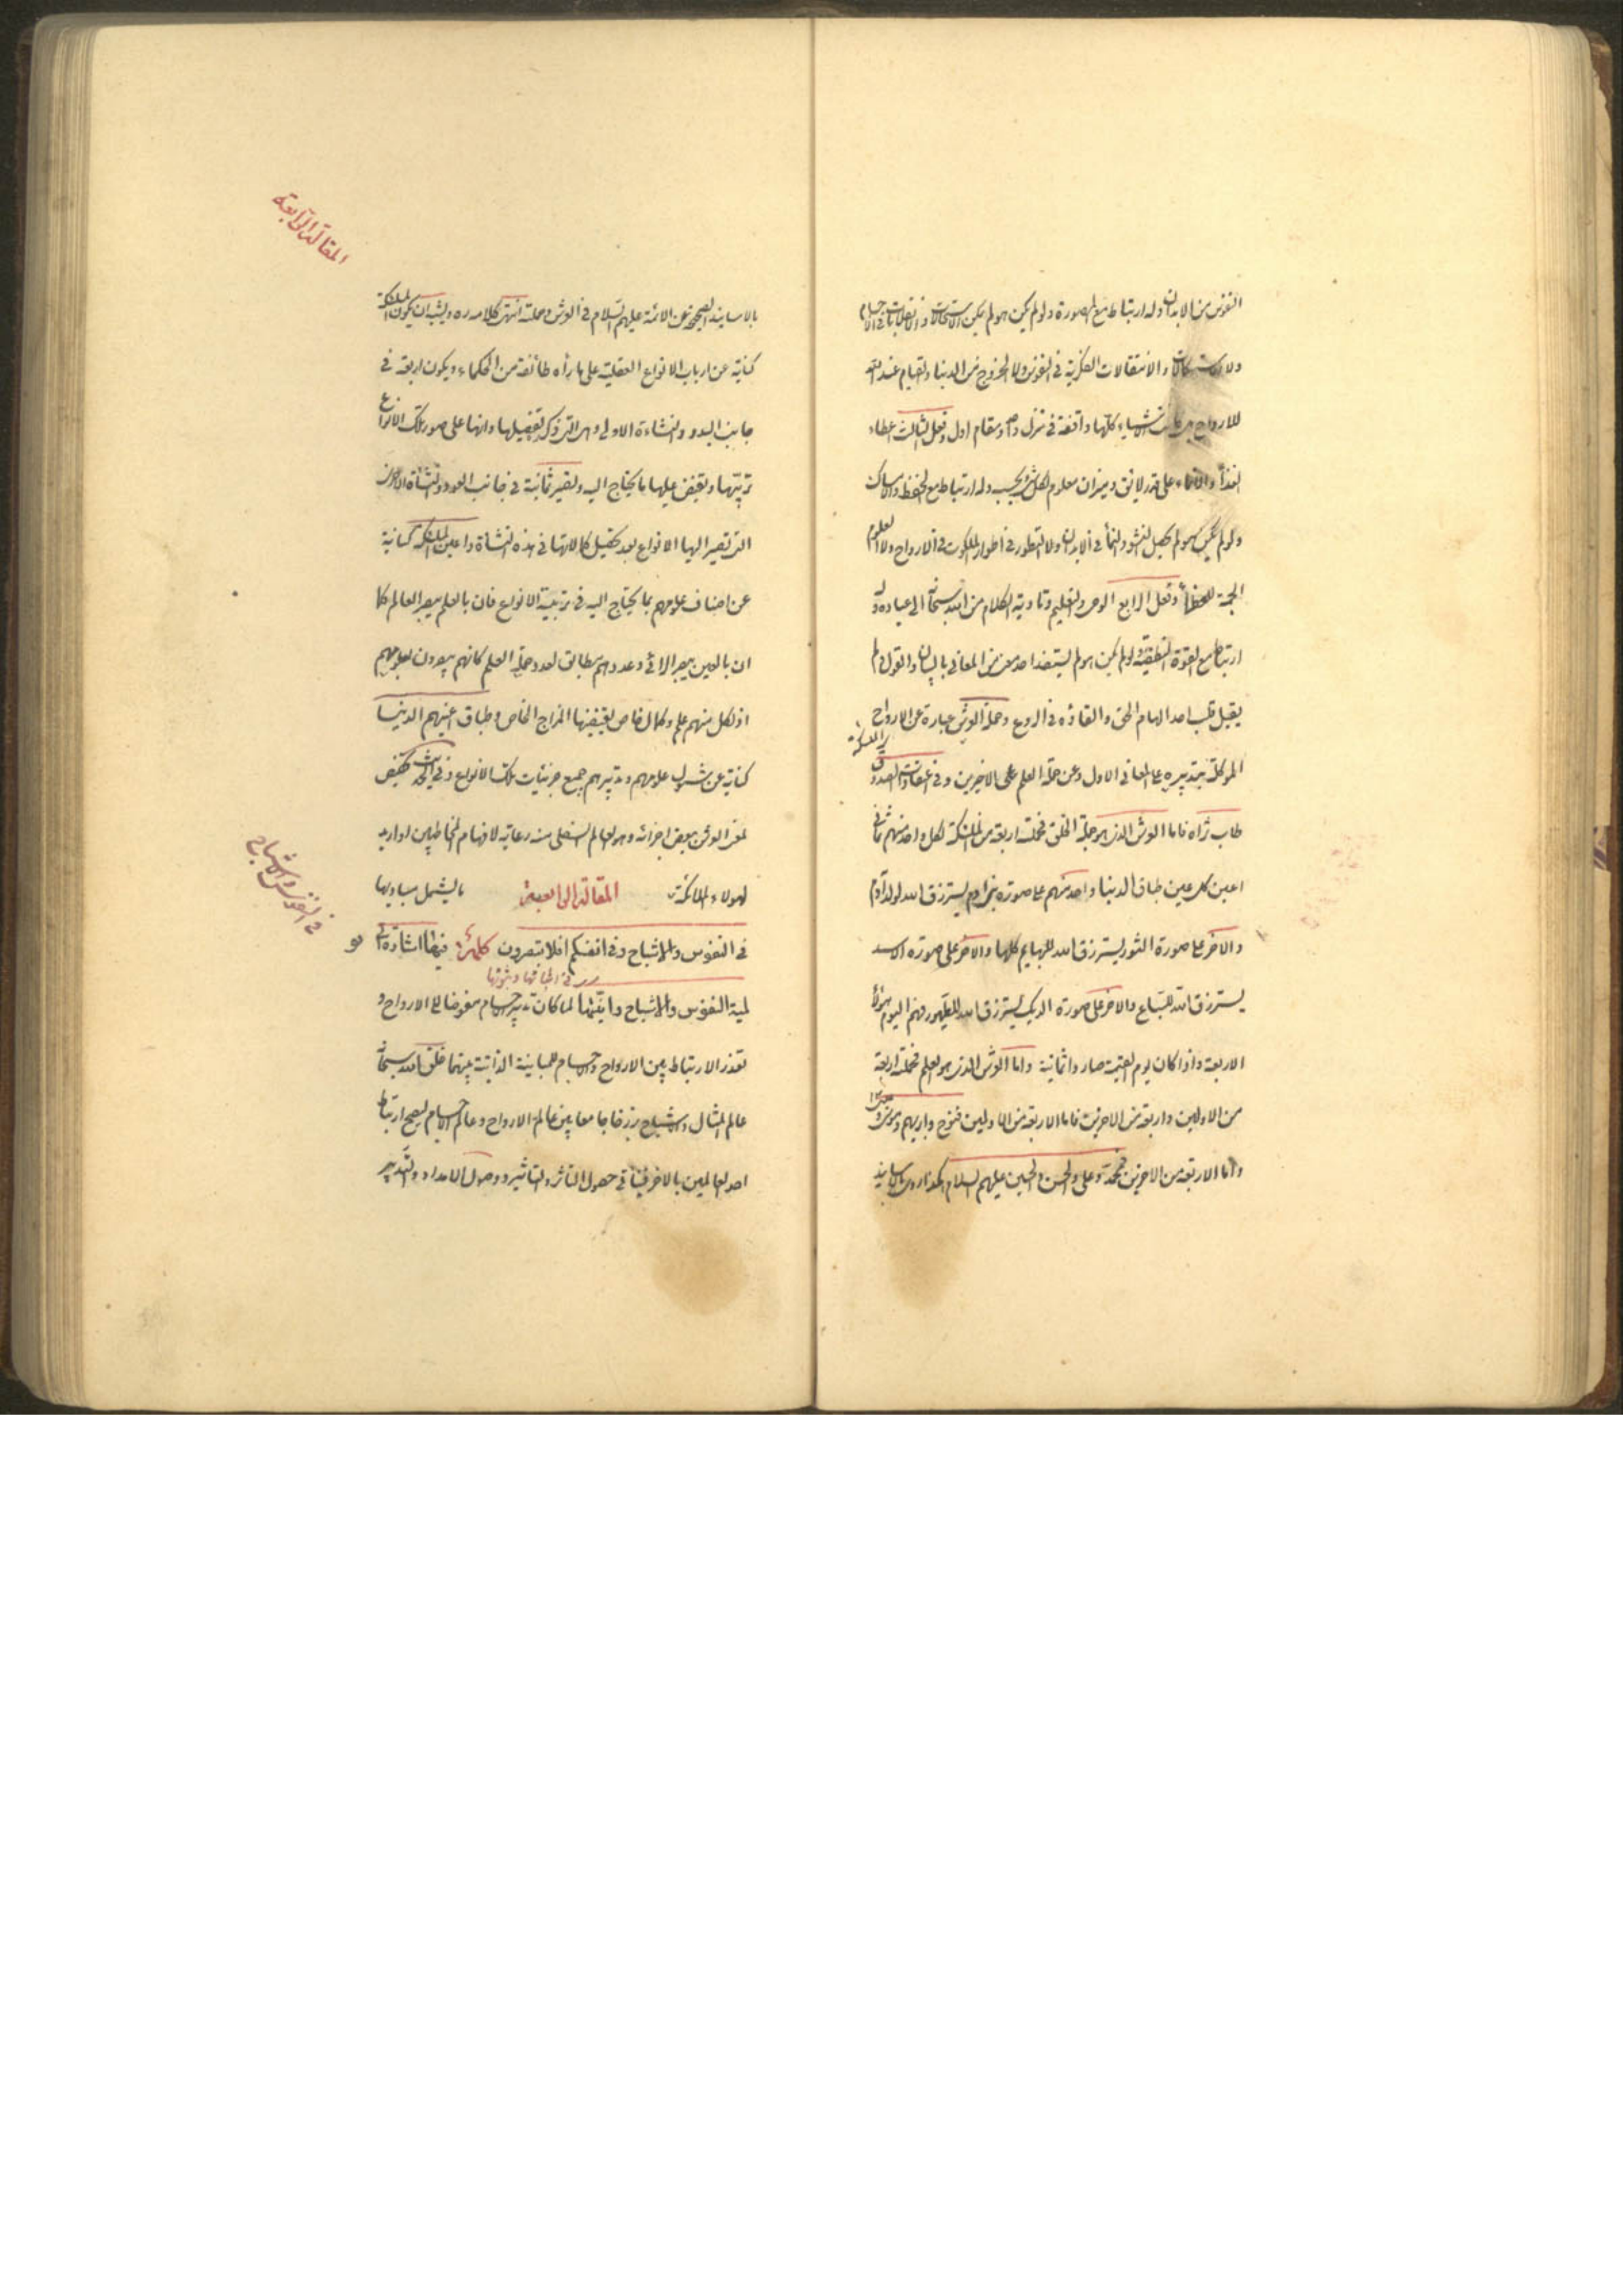 النفوس من الابدان وله ارتباط مع الصورة ولو لم يكن هو لم يكن الاستحالات والانقلابات في الاجسام
ولا الاستكمالات والانتقالات الفكرية في النفوس ولا الخروج من الدنيا والقيام عند الله
للارواح بل كانت الاشياء كلها واقفة في منزل واحد ومقام اول وفعل الثالث اعطاء
الغذاء والانماء على قدر لائق وميزان معلوم لكل شئ بحسبه وله ارتباط مع الحفظ والامساك
ولو لم يكن هو لم يحصل النشو والنماء في الابدان ولا التطور في اطوار الملكوت في الارواح ولا العلوم
الجمة للفطرة وفعل الرابع الوحي والتعليم وتادية الكلام من الله سبحانه الى عباده وله
ارتباط مع القوة النطقية ولو لم يكن هو لم يستفد احد معنى من المعاني بالبيان والقول ولم
يقبل قلب احد الهام الحق والقاؤه في الروع وحملة العرش عبارة عن الارواح
الموكلة بتدبيره على المعاني الاول وعن حملة العلم على الاخيرين وفي اعتقادات الصدوق
طاب ثراه فاما العرش الذي هو جملة الخلق فحملته اربعة من الملائكة لكل واحد منهم ثماني
اعين كل عين طباق الدنيا واحد منهم على صورة بني ادم يسترزق الله لولد آدم
والاخر على صورة الثور يسترزق الله للبهايم كلها والاخر على صورة الاسد
يسترزق الله للسباع والاخر على صورة الديك يسترزق الله للطيور فهم اليوم هؤلاء
الاربعة واذا كان يوم القيمة صاروا ثمانية واما العرش الذي هو العلم فحملته اربعة
من الاولين واربعة من الاخرين فاما الاربعة من الاولين فنوح وابراهيم وموسى وعيسى
واما الاربعة من الاخرين فمحمد وعلي والحسن والحسين عليهم السلام هكذا روي بالاسانيد
المقالة الرابعة
بالاسانيد الصحيحة عن الائمة عليهم السلام في العرش وحملته انتهى كلامه ره ويشبه ان يكون الملائكة
كناية عن ارباب الانواع العقلية على ما رآه طائفة من الحكماء ويكون اربعة في
جانب البدو والنشاءة الاولى وهي التي ذكر تفصيلها وانها على صور تلك الانواع
تربيها وتفيض عليها ما يحتاج اليه وتصير ثمانية في جانب العود والنشأة الاخرى
التي تصير اليها الانواع بعد تحصيل كمالاتها في هذه النشأة واعين الملائكة كناية
عن اصناف علومهم بما يحتاج اليه في تربية الانواع فان بالعلم يبصر العالم كما
ان بالعين يبصر الرائي وعددهم مطابق لعدد حملة العلم كانهم يبصرون بعلومهم
اذ لكل منهم علم وكمال خاص يقتضيها المزاج الخاص وطباق اعينهم الدنيا
كناية عن شمول علومهم وتدبيرهم جميع جزئيات تلك الانواع وفي الحديث تخصيص
لمعنى العرش ببعض اجزائه وهو العالم السفلي منه رعاية لافهام المخاطبين او اريد
لهولاء الملائكة المقالة الرابعة ما يشمل مباديها
في النفوس والاشباح وفي انفسكم افلا تبصرون كلمة فيها اشارة الى
في النفوس والاشباح
لمية النفوس والاشباح وانيتهما لما كان تدبير الاجسام مفوضا الى الارواح و
تعذر الارتباط بين الارواح والاجسام للمباينة الذاتية بينهما خلق الله سبحانه
عالم المثال والاشباح برزخا جامعا بين عالم الارواح وعالم الاجسام ليصح ارتباط
احد العالمين بالاخر فيتأتى حصول التاثر والتاثير ووصول الامداد والتدبير